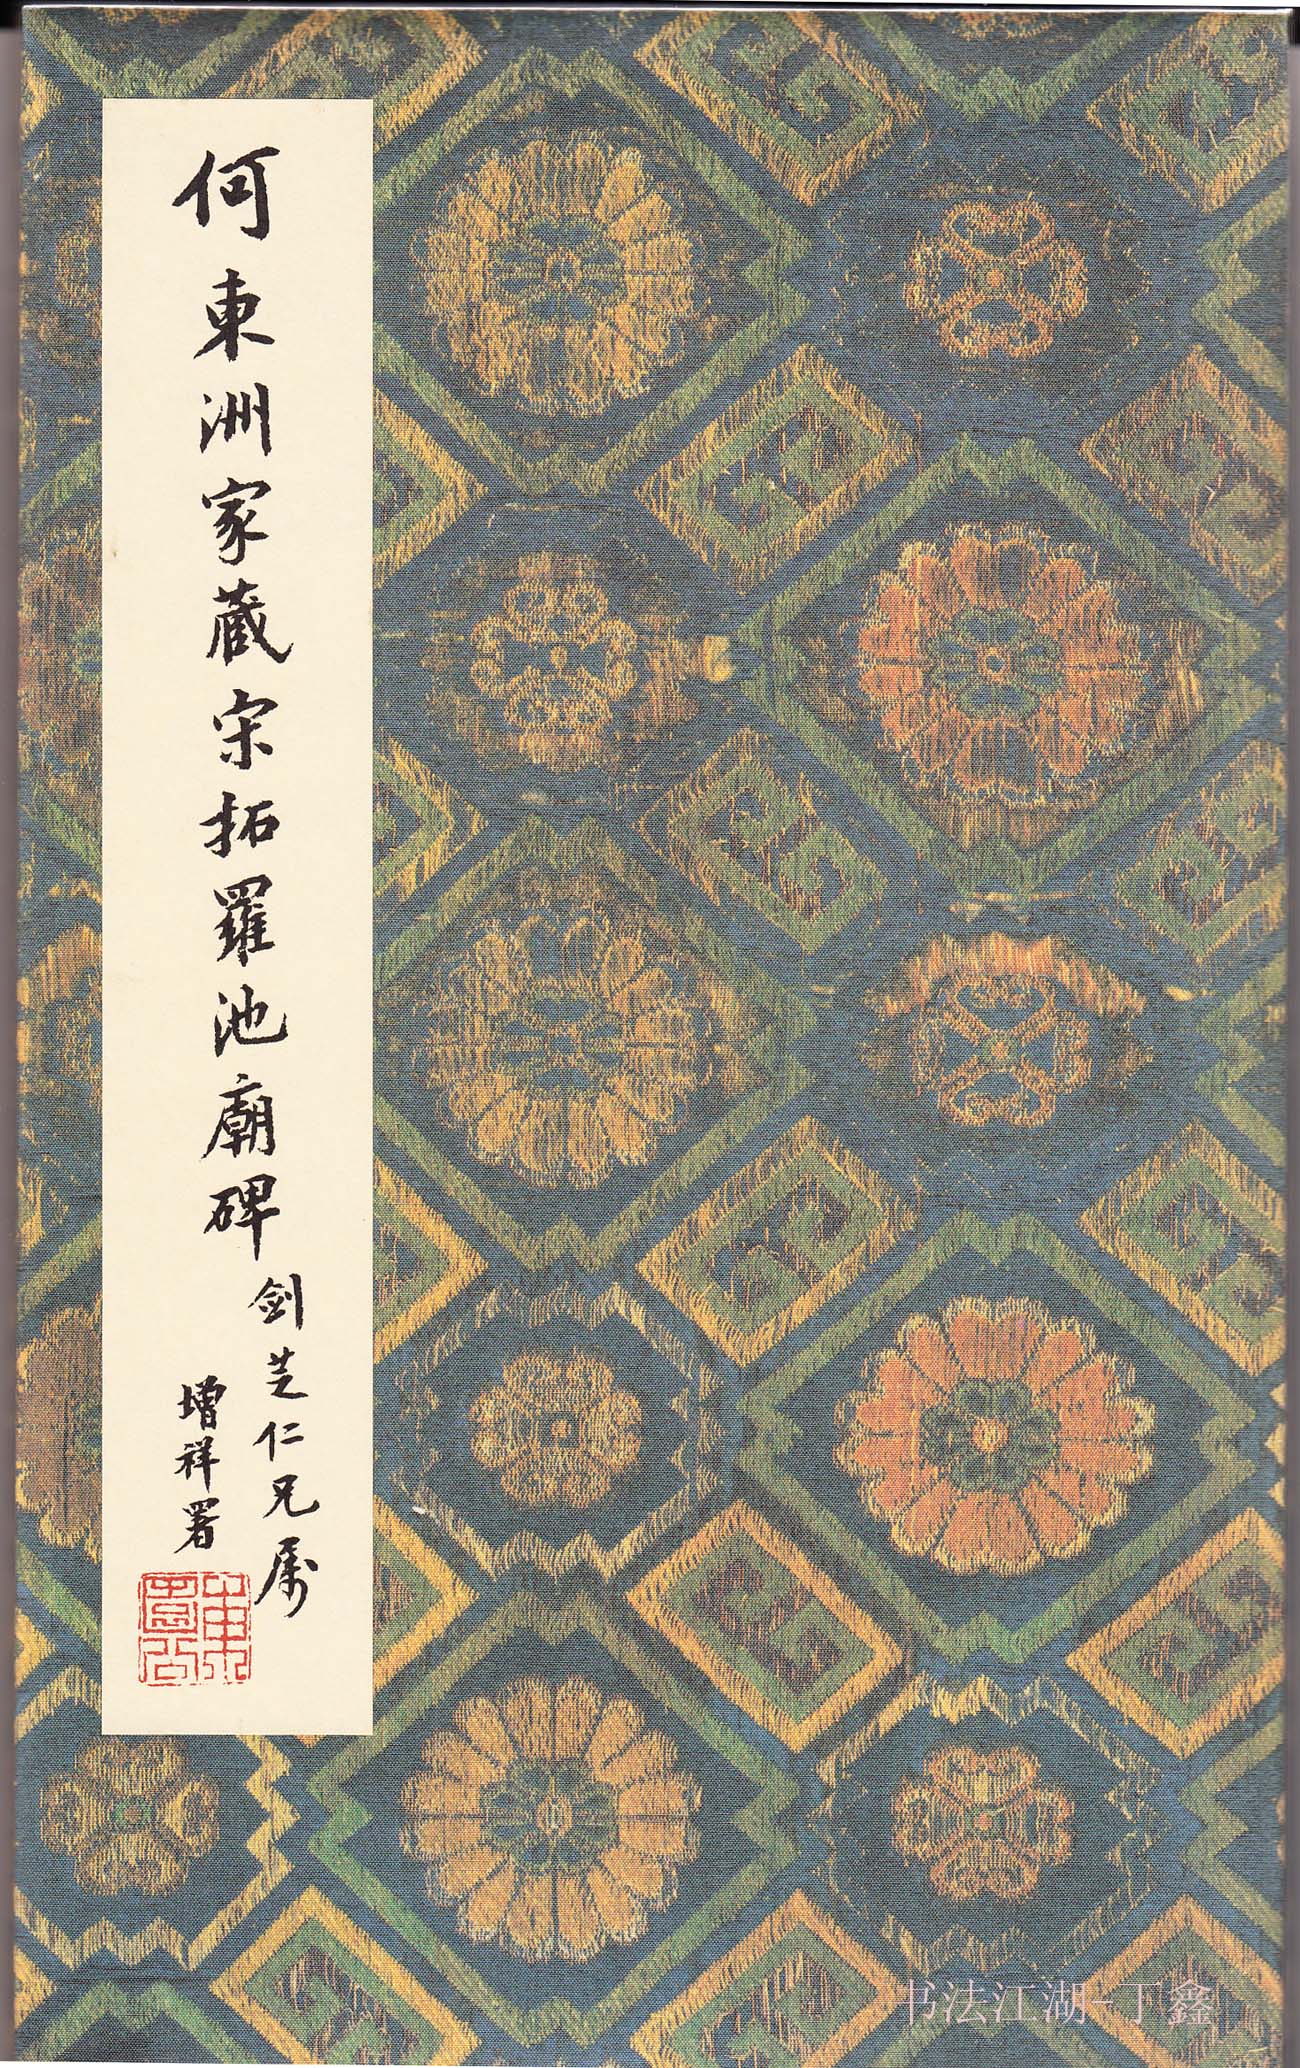 何東洲家藏宋拓羅池廟碑
剑芝仁兄属
增祥署
书法江湖-丁鑫